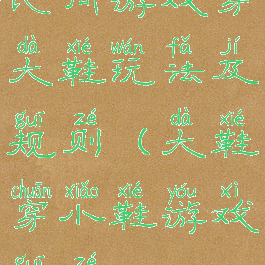 民间游戏穿
dà xié wán fǎ jí
大鞋玩法及
guī zé dà xié
规则(大鞋
chuān xiǎo xié yóu xì
穿小鞋游戏
guī zé